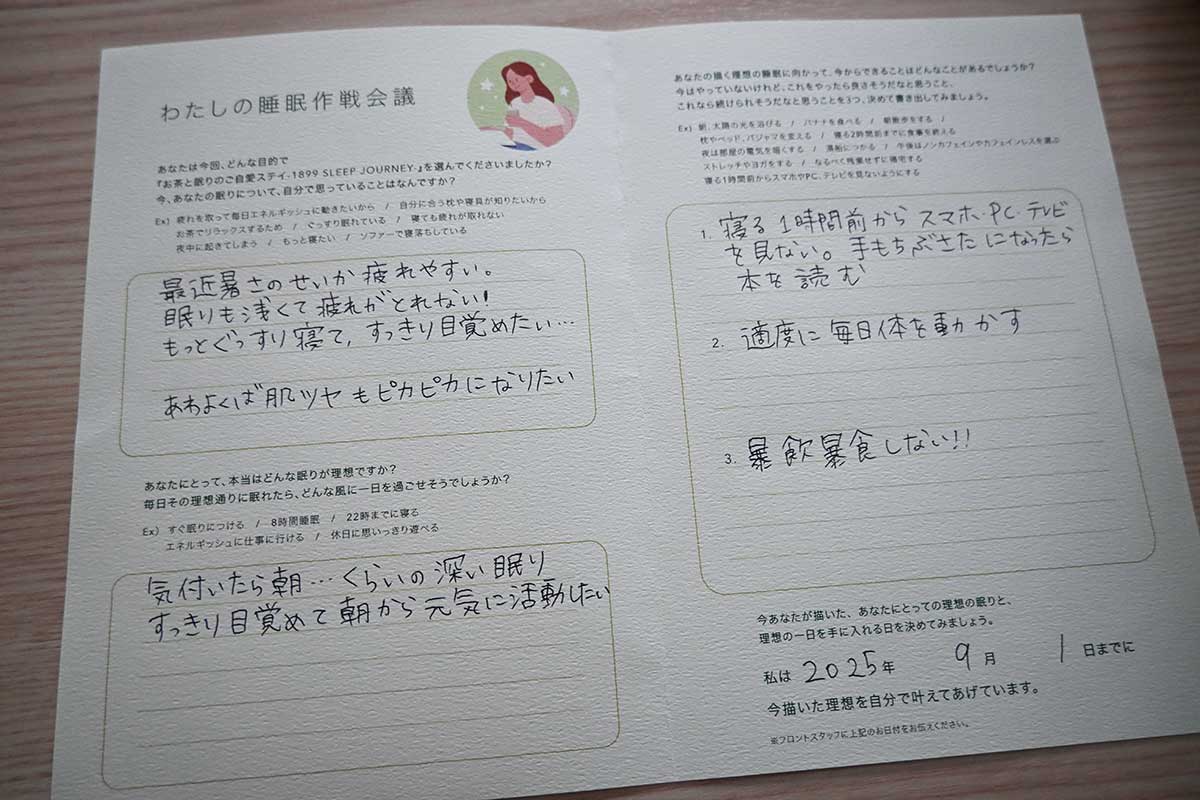 わたしの睡眠作戦会議
あなたは今回、どんな目的で
『お茶と眠りのご自愛ステイ-1899 SLEEP JOURNEY-』を選んでくださいましたか?
今、あなたの眠りについて、自分で思っていることはなんですか?
Ex) 疲れを取って毎日エネルギッシュに動きたいから / 自分に合う枕や寝具が知りたいから
お茶でリラックスするため / ぐっすり眠れている / 寝ても疲れが取れない
夜中に起きてしまう / もっと寝たい / ソファーで寝落ちしている
最近暑さのせいか疲れやすい。
眠りも浅くて疲れがとれない!
もっとぐっすり寝て、すっきり目覚めたい…
あわよくば肌ツヤもピカピカになりたい
あなたにとって、本当はどんな眠りが理想ですか?
毎日その理想通りに眠れたら、どんな風に一日を過ごせそうでしょうか?
Ex) すぐ眠りにつける / 8時間睡眠 / 22時までに寝る
エネルギッシュに仕事に行ける / 休日に思いっきり遊べる
気付いたら朝…くらいの深い眠り
すっきり目覚めて朝から元気に活動したい
あなたの描く理想の睡眠に向かって、今からできることはどんなことがあるでしょうか?
今はやっていないけれど、これをやったら良さそうだなと思うこと、
これなら続けられそうだなと思うことを3つ、決めて書き出してみましょう。
Ex) 朝、太陽の光を浴びる / バナナを食べる / 朝散歩をする /
枕やベッド、パジャマを変える / 寝る2時間前までに食事を終える
夜は部屋の電気を暗くする / 湯船につかる / 午後はノンカフェインやカフェインレスを選ぶ
ストレッチやヨガをする / なるべく残業せずに帰宅する
寝る1時間前からスマホやPC、テレビを見ないようにする
1. 寝る1時間前からスマホ・PC・テレビ
を見ない。手もちぶさたになったら
本を読む
2. 適度に毎日体を動かす
3. 暴飲暴食しない!!
今あなたが描いた、あなたにとっての理想の眠りと、
理想の一日を手に入れる日を決めてみましょう。
私は 2025年 9月 1日までに
今描いた理想を自分で叶えてあげています。
※フロントスタッフに上記のお日付をお伝えください。